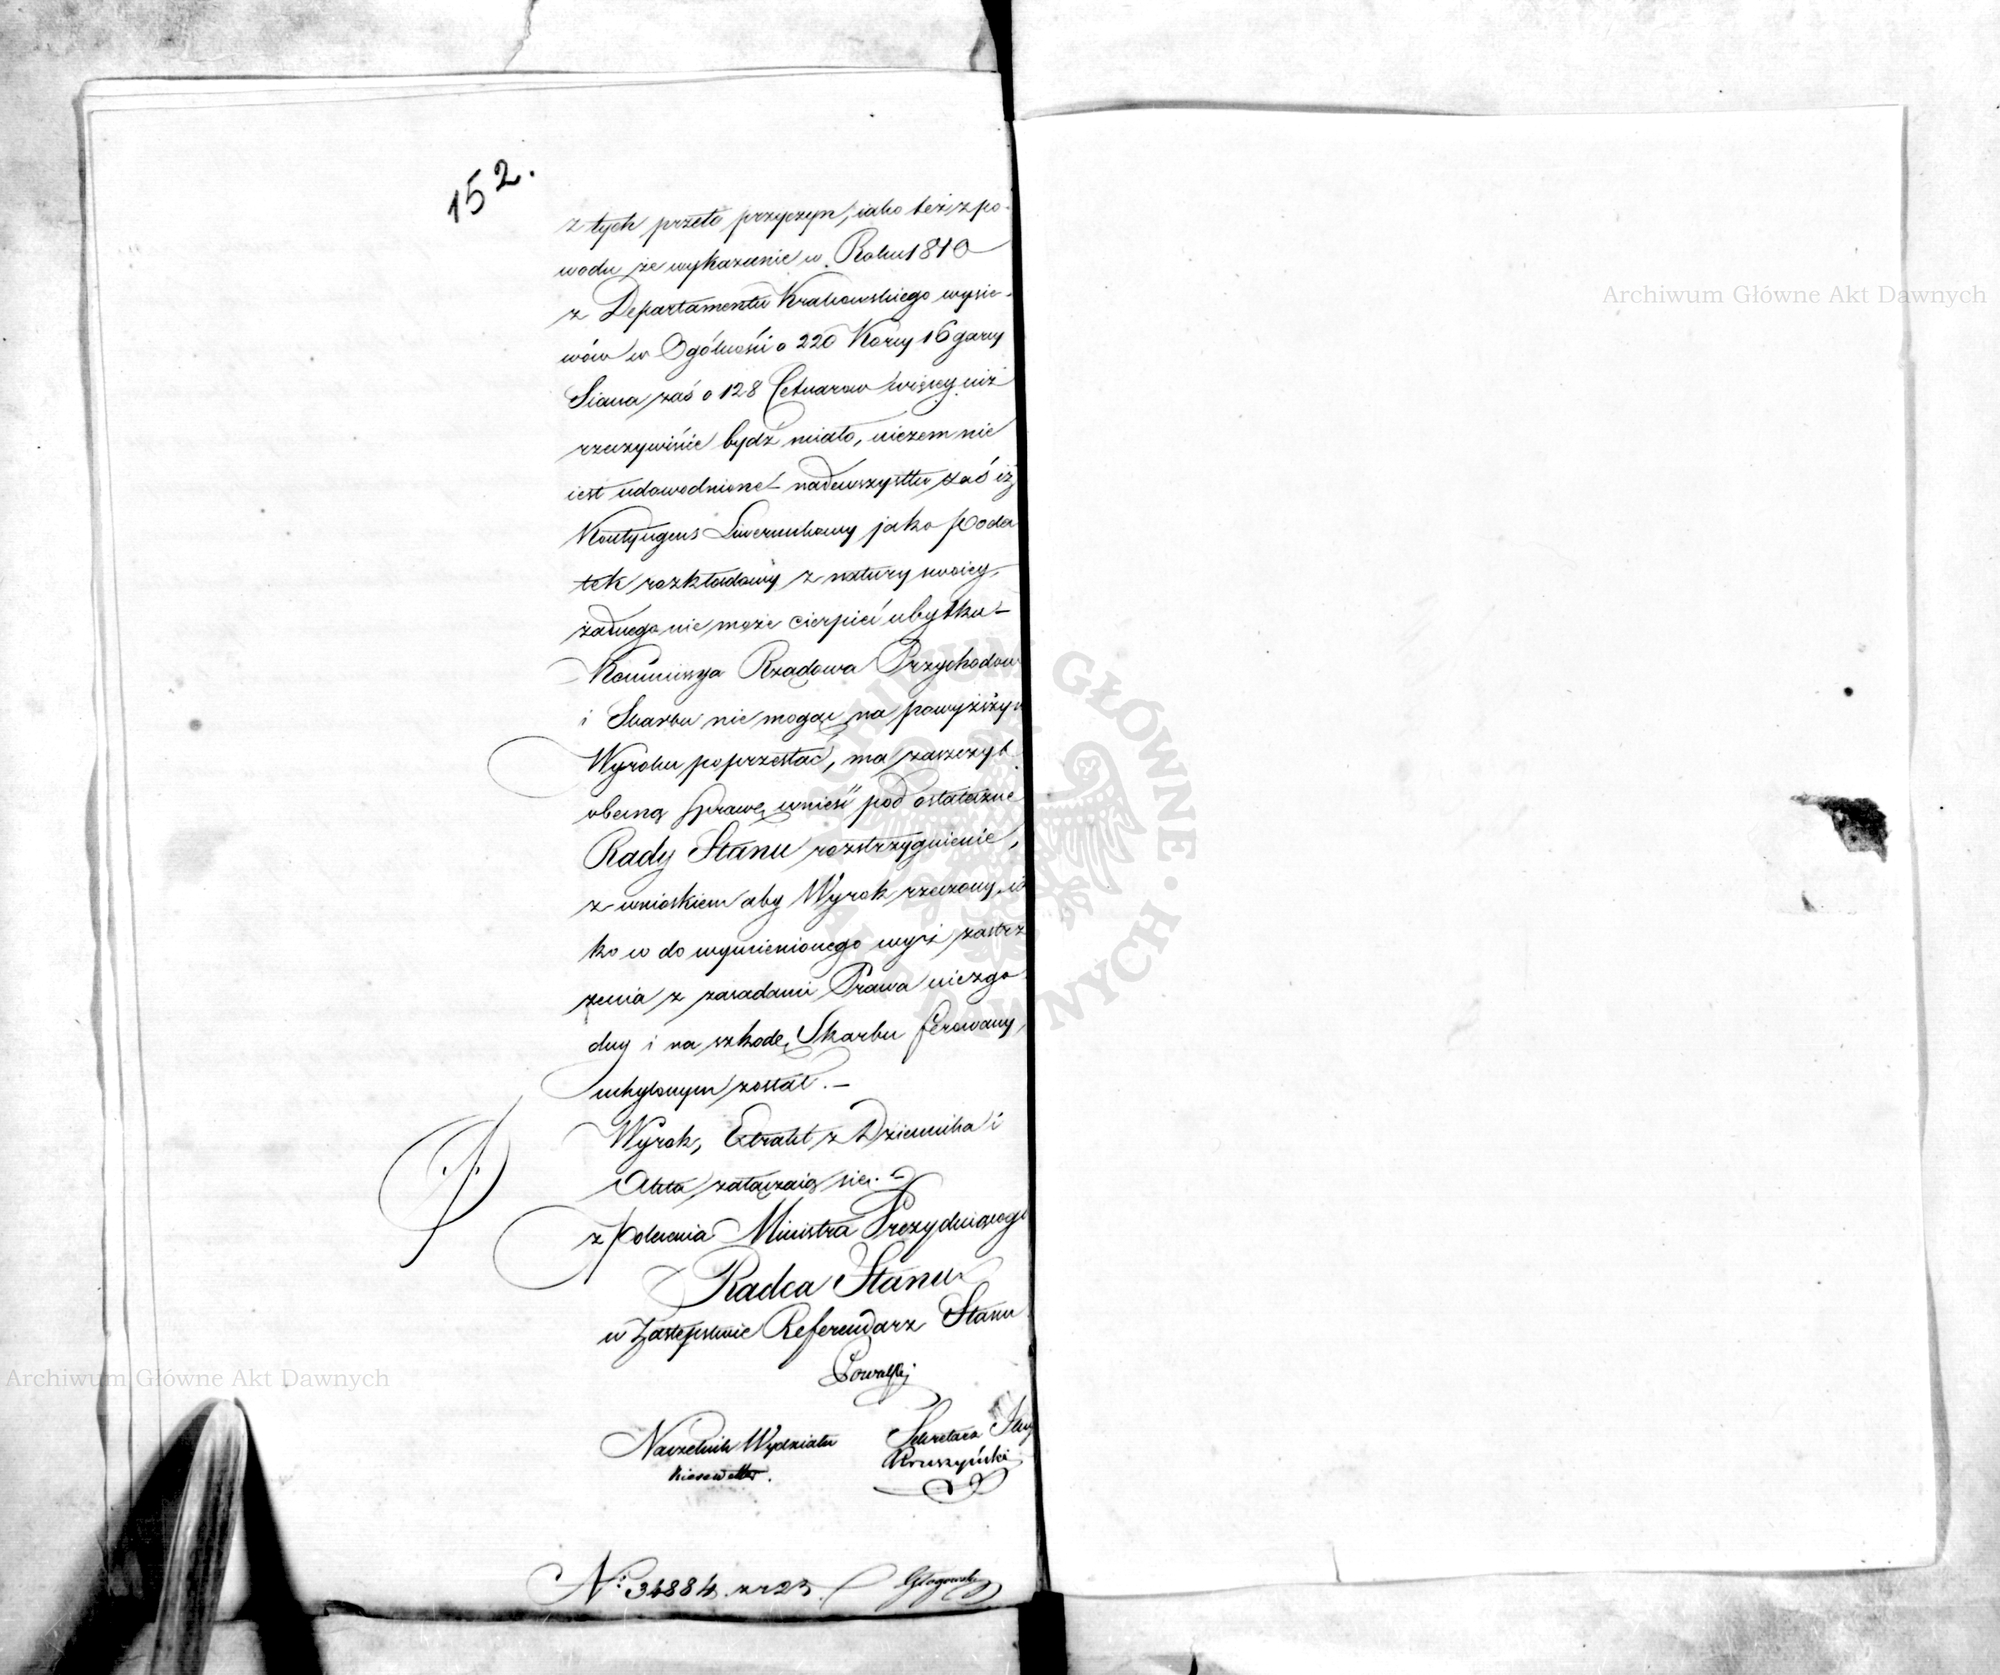 152.
z tych przeto przyczyn, iako też z po-
wodu że wykazanie w Roku 1810
z Departamentu Krakowskiego wysie-
wów w Ogólności o 220 Korcy 16 garcy
Siana zaś o 128 Cetnarow więcey niż
rzeczywiście bydź miało, niczem nie
iest udowodnione nadewszystko zaś iż
Kontyngens Liwerunkowy jako Poda
tek rozkładowy z natury swoiey,
żadnego nie może cierpieć ubytku -
Kommissya Rządowa Przychodow
i Skarbu nie mogąc na powyższym
Wyroku poprzestać, ma zaszczyt
obecną sprawę wnieść pod ostateczne
Rady Stanu rozstrzygnienie,
z wnioskiem aby Wyrok rzeczony ia
ko co do wymienionego wyż zastrz
żenia z zasadami Prawa niezgo
dny i na szkodę Skarbu ferowany,
uchylonym został. -
Wyrok, Extrakt z Dziennika i
Akta załączaią się. -
z Polecenia Ministra Prezyduiącego
Radca Stanu
w Zastępstwie Referendarz Stanu
Naczelnik Wydziału Sekretarz
Kiesewetter. Kruszyński
No. 34884 23. Głogowski
Archiwum Główne Akt Dawnych
Archiwum Główne Akt Dawnych